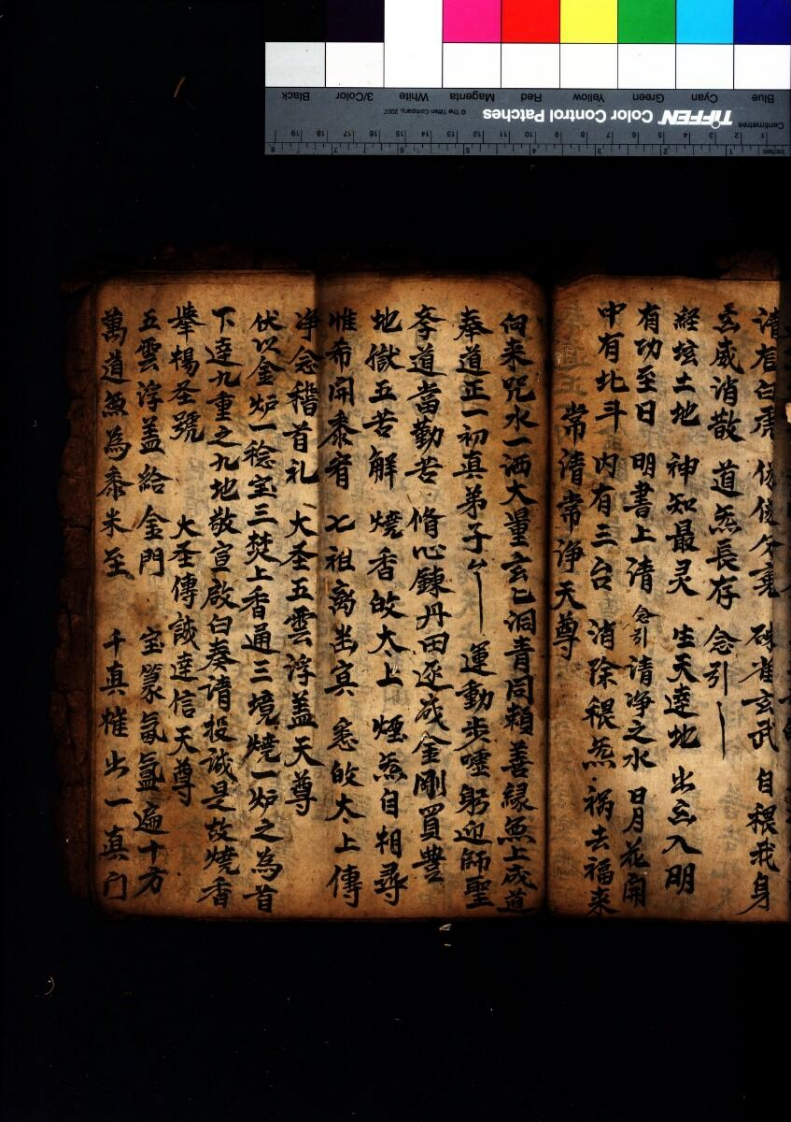 清右白虎 俵俵分竟 硃雀玄武 自穩我身
玄威消散 道炁長存 念引
経垓土地 神知最灵 生天達地 出玄入明
有功至日 明書上清 念引 清浄之水 日月花開
中有北斗 内有三台 消除穢炁 祸去福来
常清常浄天尊
向来咒水一洒大量玄已洞青同頼善緣炁上成道
奉道正一初真弟子 運動步嘘躬迎師聖
孝道當勤苦 脩心鍊丹田 逐成金剛買豊
地獄五苦解 燒香皈太上 煙炁自相尋
惟希開黍宥 七祖离出寘 悉皈太上傳
浄念稽首礼 大圣五雲浮蓋天尊
伏以金炉一稔宝三焚上香通三境燒一炉之為首
下達九重之九地敬宣啟白奏请投诚是故燒香
举揚圣號 大圣傳誠達信天尊
五雲浮蓋給金門 宝篆氤氲遍十方
萬道炁為黍米至 千真催出一真门
TIFFEN Color Control Patches
© The Tiffen Company, 2007
Blue Cyan Green Yellow Red Magenta White 3/Color Black
Centimetres
Inches